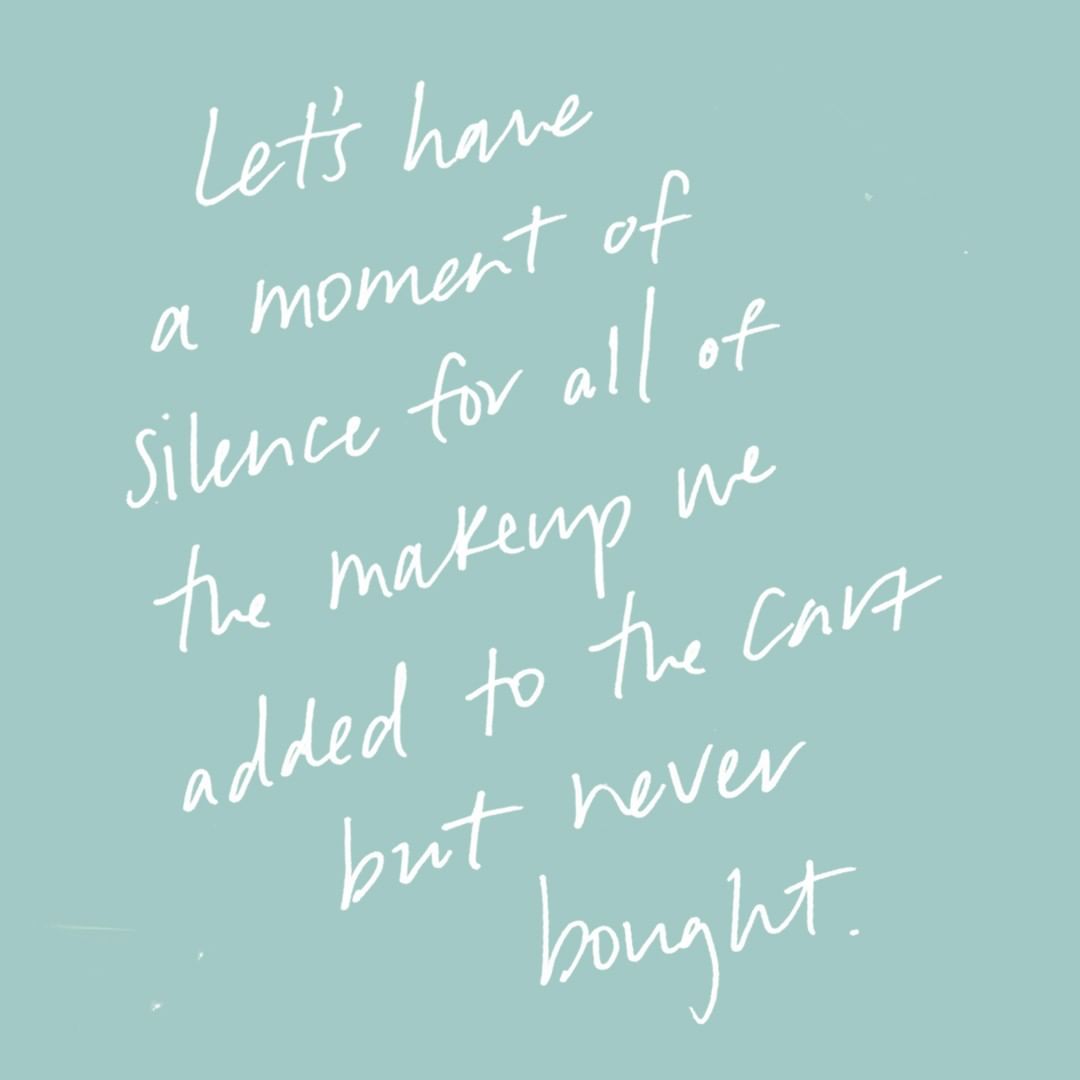 Let's have
a moment of
silence for all of
the makeup we
added to the cart
but never
bought.